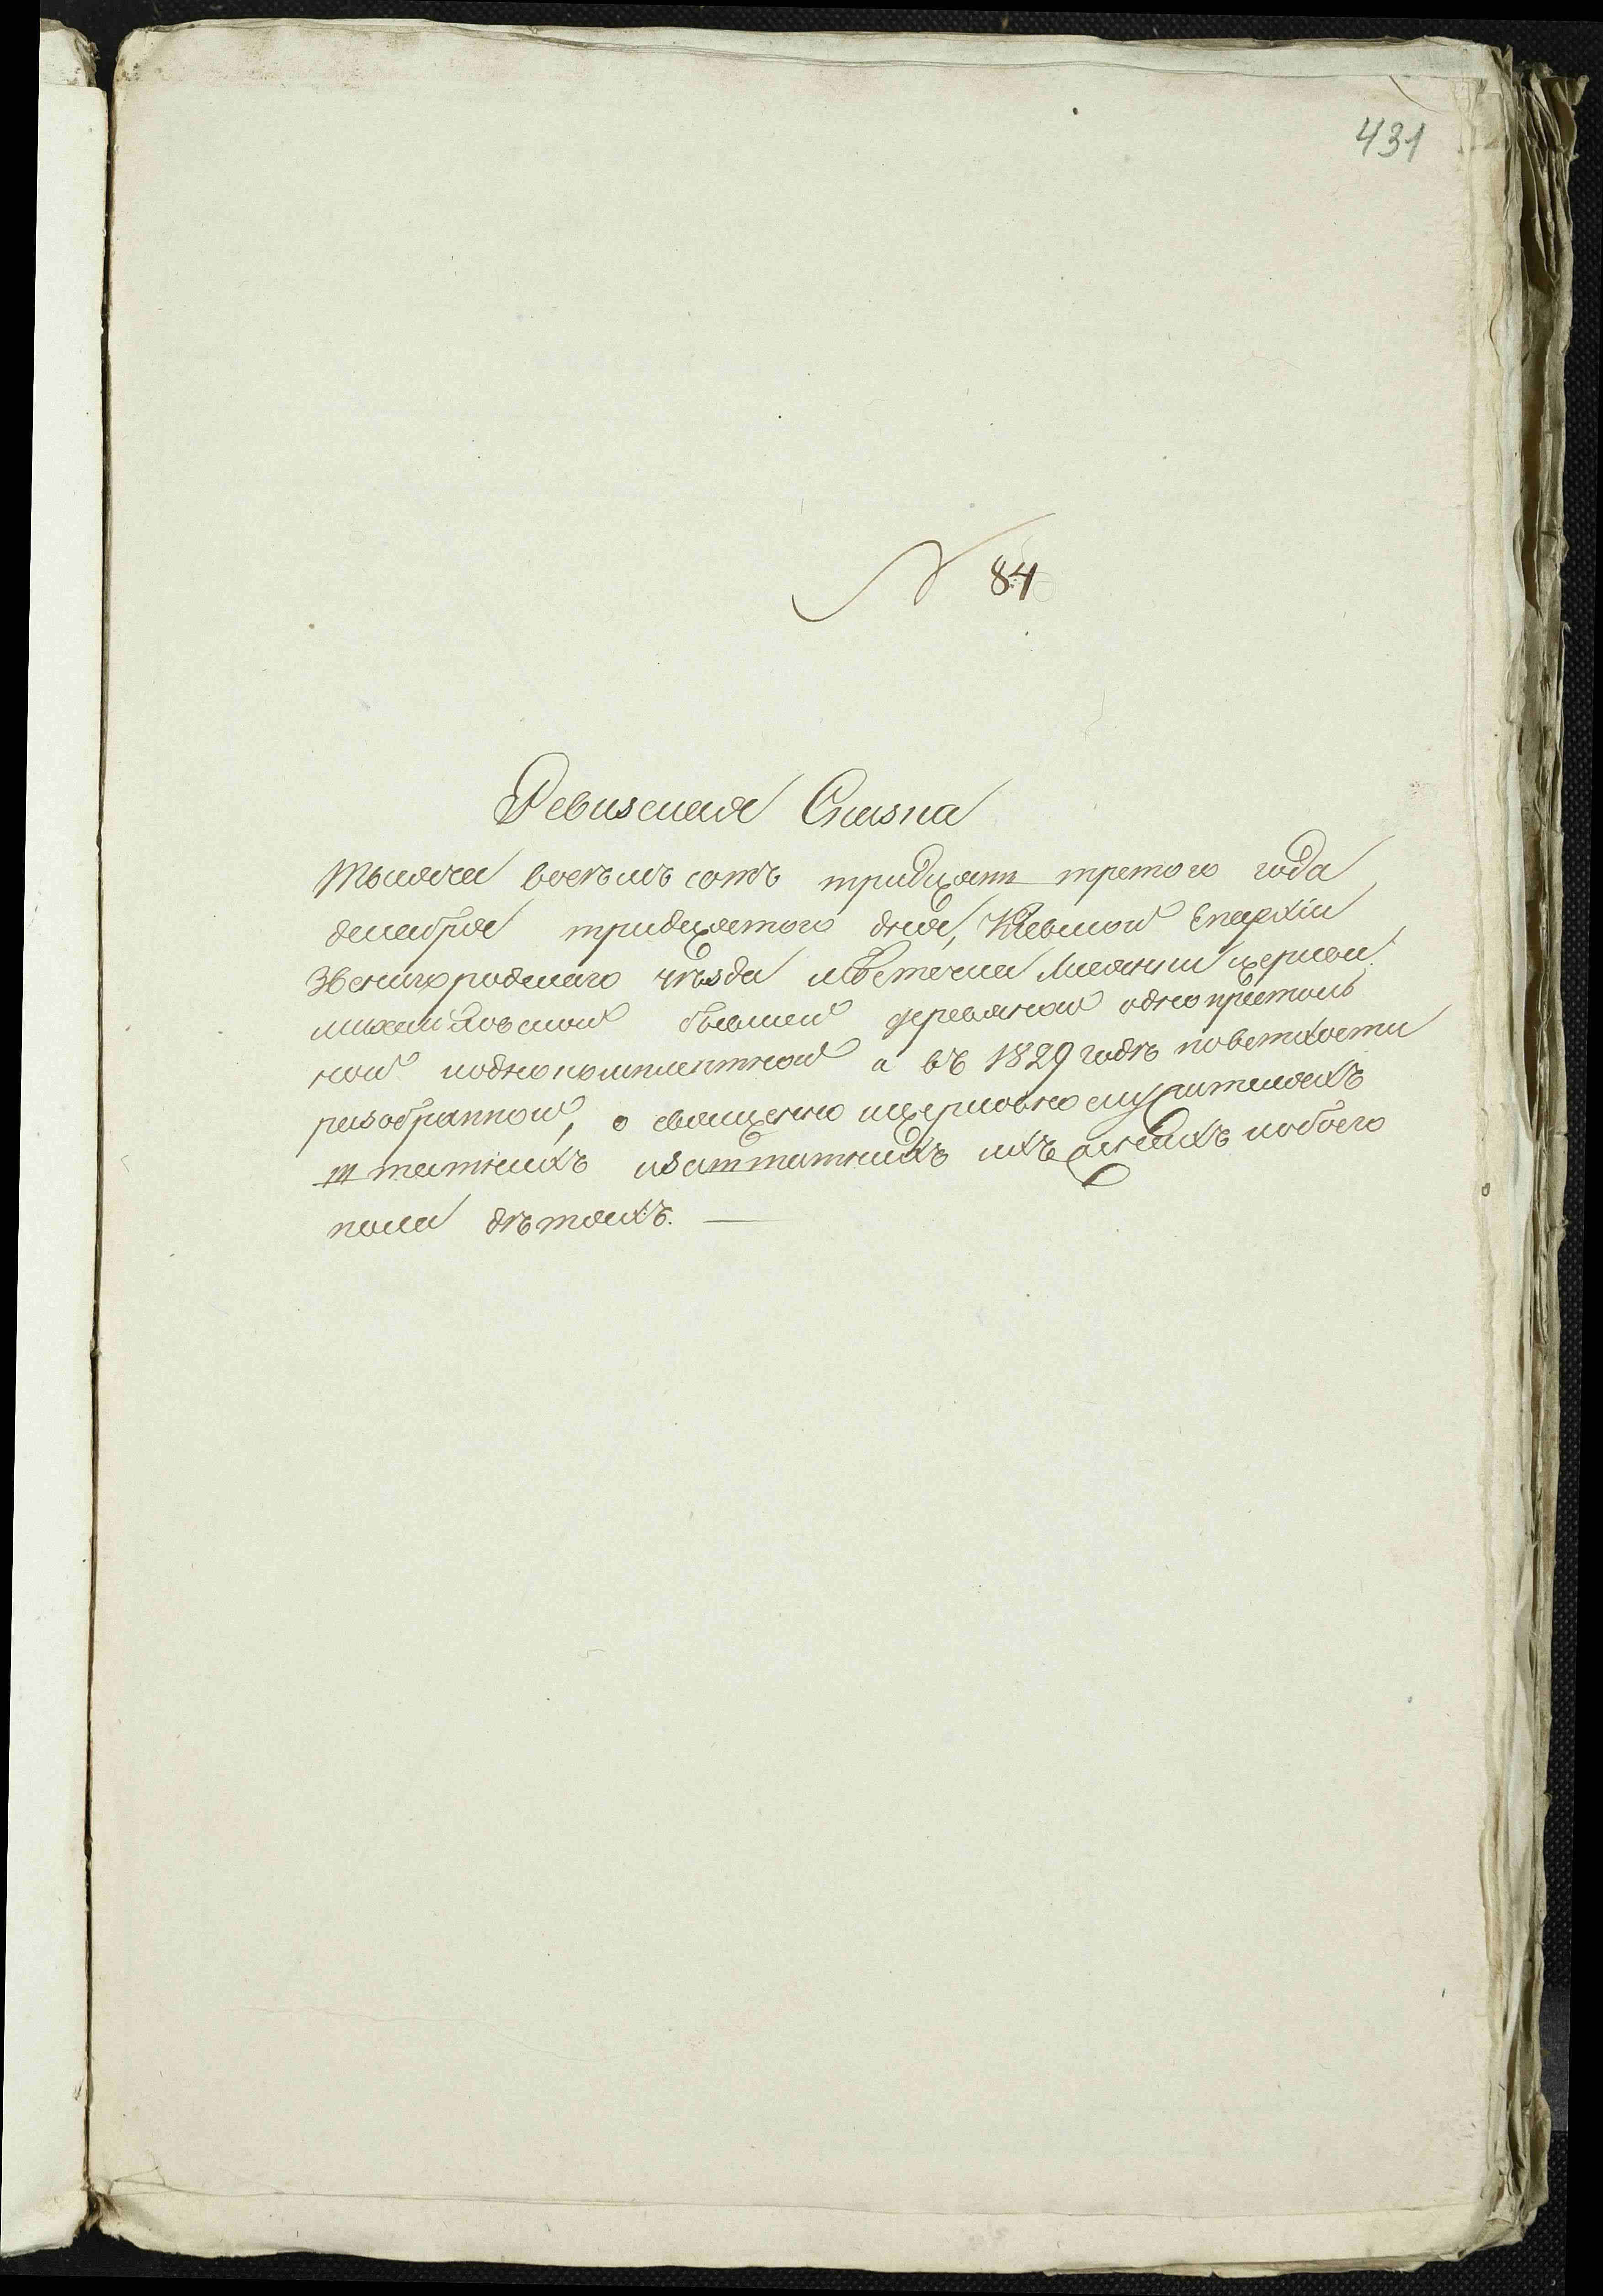 431
№ 84
Ревизская Сказка
Тысяча восѣмъ сотъ тридцять третого года
декабря тридцятого дня, Кіевской Епархіи
Звенигородскаго уѣзда мѣстечка Лисянки церкви
михайловской бывшей деревяной однопрестоль
ной иоднокомплектной а въ 1829 годѣ поветхости
разобранной, о священно ицерковно служителяхъ
штатныхъ изаштатныхъ ихъ женахъ иобоего
пола дѣтяхъ. —